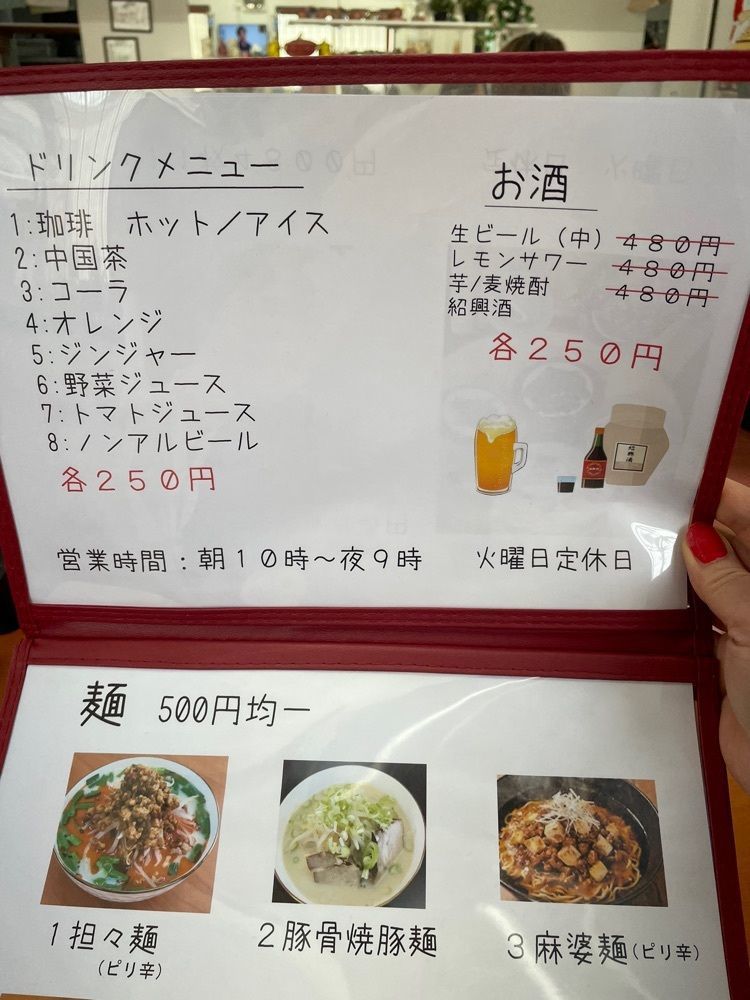 ドリンクメニュー
1:珈琲　ホット／アイス
2:中国茶
3:コーラ
4:オレンジ
5:ジンジャー
6:野菜ジュース
7:トマトジュース
8:ノンアルビール
各２５０円
お酒
生ビール（中）４８０円
レモンサワー　４８０円
芋/麦焼酎　４８０円
紹興酒
各２５０円
紹興酒
営業時間：朝１０時～夜９時　火曜日定休日
麺　500円均一
1 担々麺
（ピリ辛）
2 豚骨焼豚麺
3 麻婆麺（ピリ辛）